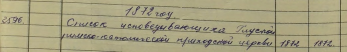 1872 году
2596. Список исповедывающихся Глуской
римско-католической приходской церкви 1872 1872.